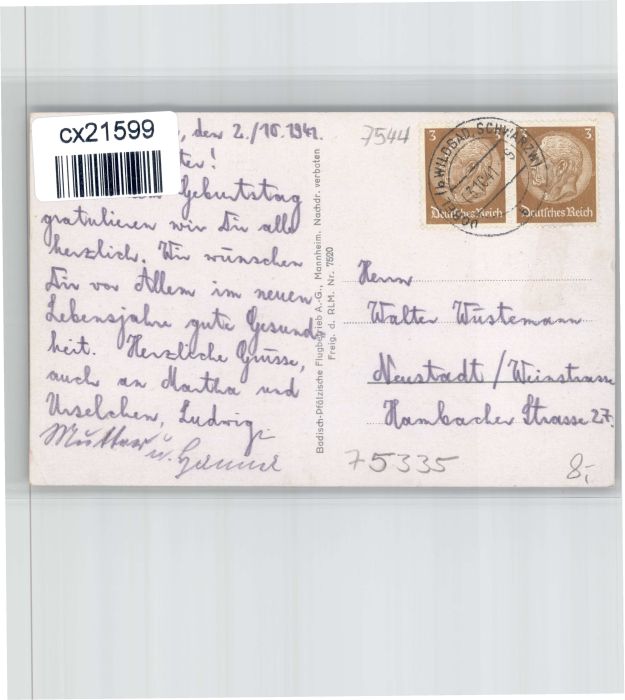 cx21599
, den 2./10.1941.
ter!
Geburtstag
gratulieren wir Dir alle
herzlich. Wir wünschen
Dir vor Allem im neuen
Lebensjahre gute Gesund-
heit. Herzliche Grüsse,
auch an Martha und
Urselchen, Ludwig.
Mutter u.
Badisch-Pfälzische Flugbetrieb A.-G., Mannheim. Nachdr. verboten
Freig. d. RLM. Nr. 7520
7544
3 3
Deutsches Reich
3
Deutsches Reich
WILDBAD, SCHWARZW
Herrn
Walter Wüstemann
Neustadt / Weinstrasse
Hambacher Strasse 27.
75335
8,-